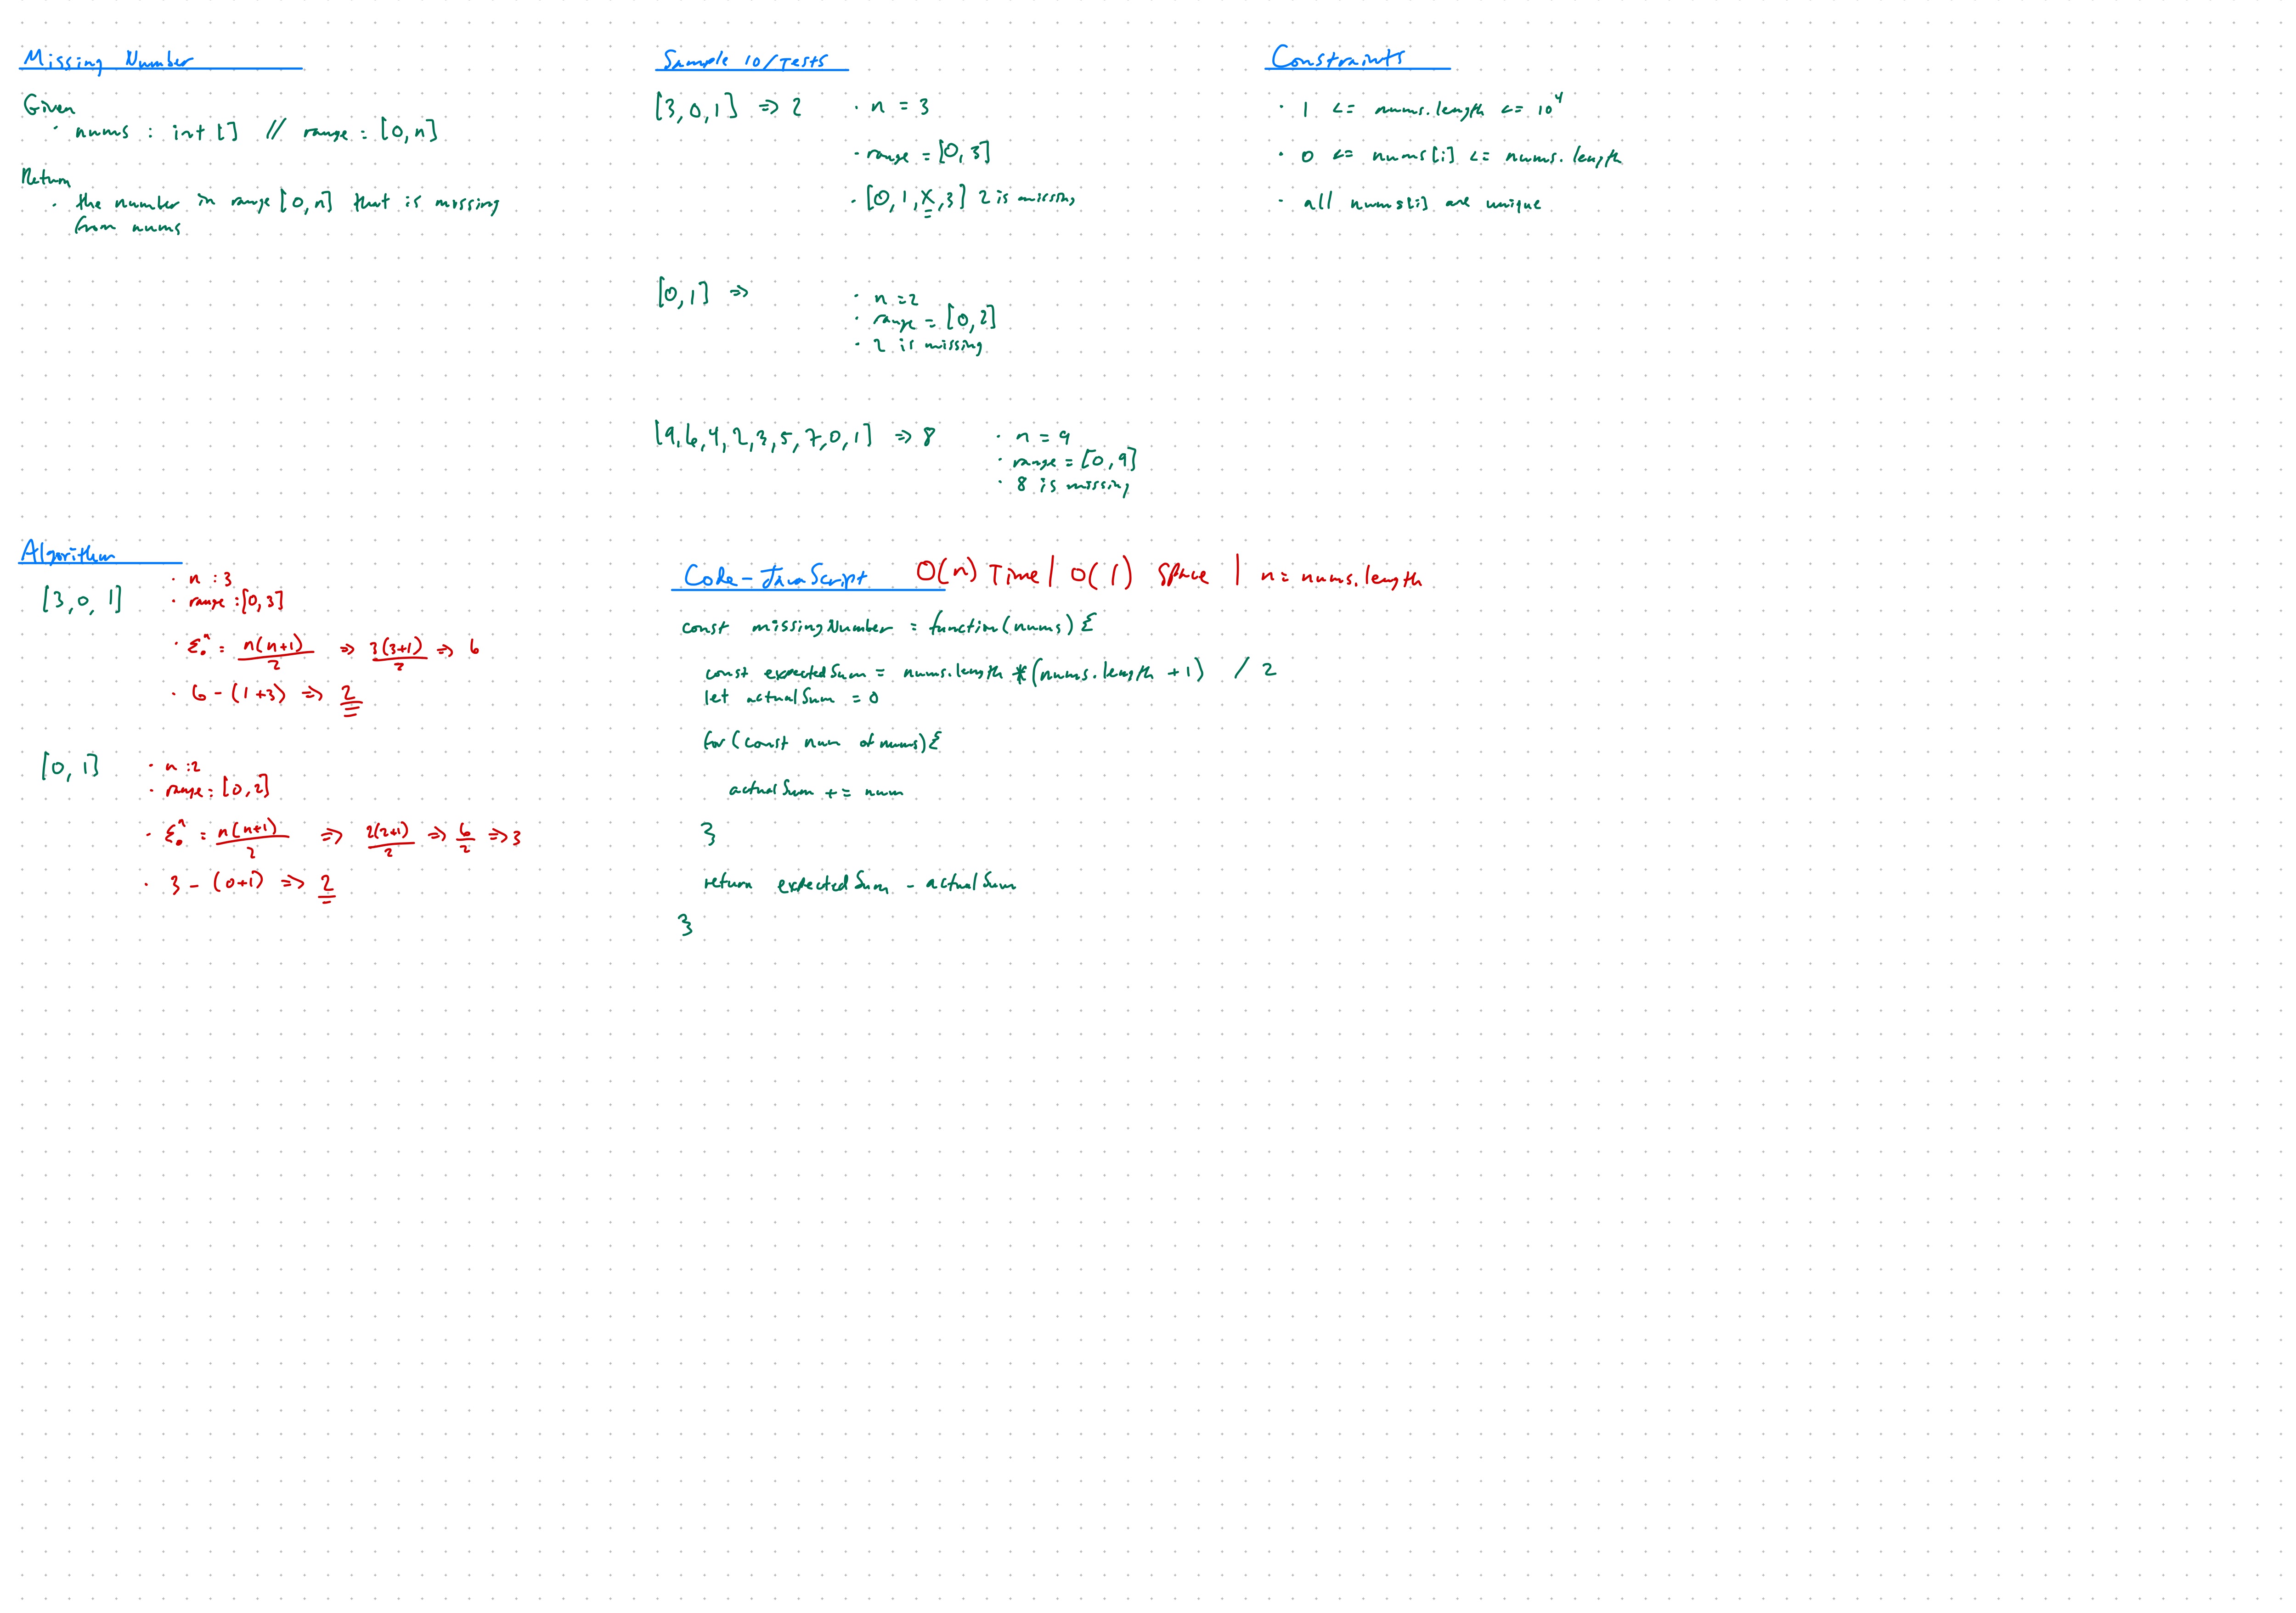 Missing Number
Given
· nums : int [] // range = [0,n]
Return
· the number in range [0,n] that is missing
from nums
Sample IO/Tests
[3,0,1] => 2 · n = 3
· range = [0,3]
· [0,1,X,3] 2 is missing
[0,1] => · n =2
· range = [0,2]
· 2 is missing
[9,6,4,2,3,5,7,0,1] => 8 · n = 9
· range = [0,9]
· 8 is missing
Constraints
· 1 <= nums.length <= 10⁴
· 0 <= nums[i] <= nums.length
· all nums[i] are unique
Algorithm
[3,0,1] · n : 3
· range : [0,3]
· Σ₀ⁿ = n(n+1)/2 => 3(3+1)/2 => 6
· 6 - (1+3) => 2
[0,1] · n :2
· range : [0,2]
· Σ₀ⁿ = n(n+1)/2 => 2(2+1)/2 => 6/2 => 3
· 3 - (0+1) => 2
Code - JavaScript O(n) Time | O(1) Space | n = nums.length
const missingNumber = function(nums) {
const expectedSum = nums.length * (nums.length + 1) / 2
let actualSum = 0
for (const num of nums) {
actualSum += num
}
return expectedSum - actualSum
}